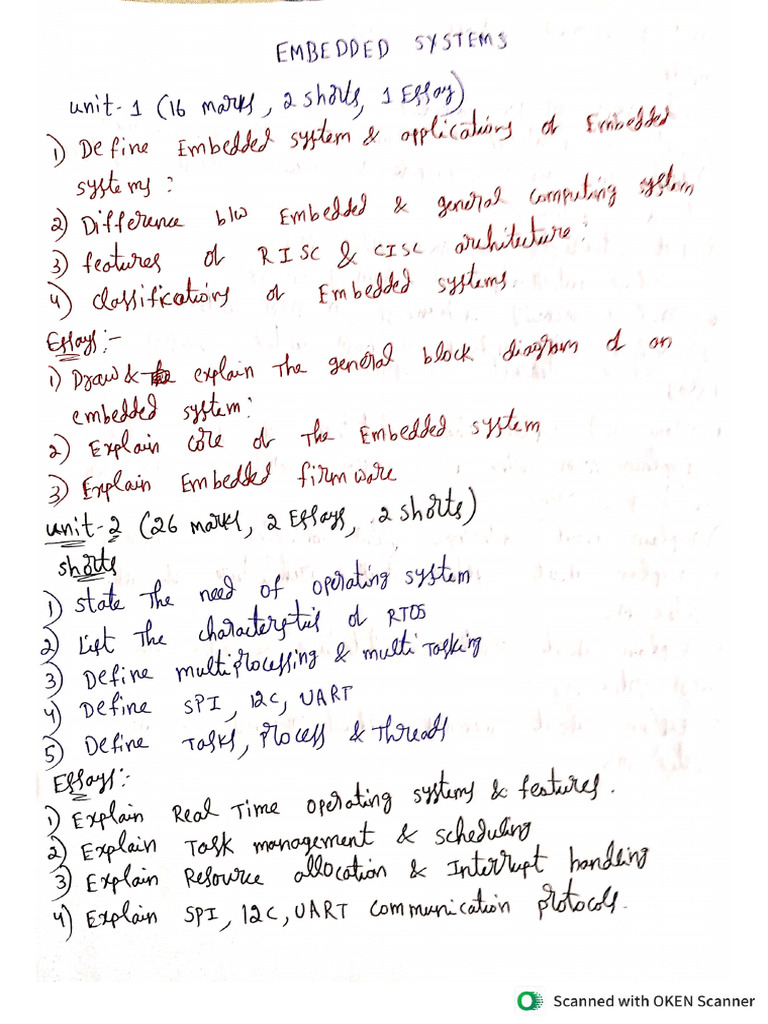 EMBEDDED SYSTEMS
unit-1 (16 marks, 2 shorts, 1 Essay)
1) Define Embedded system & applications of Embedded
systems:
2) Difference b/w Embedded & general computing system
3) features of RISC & CISC architecture:
4) classifications of Embedded systems.
Essays:-
1) Draw & explain The general block diagram of an
embedded system:
2) Explain core of The Embedded system
3) Explain Embedded firmware
unit-2 (26 marks, 2 Essays, 2 shorts)
shorts
1) State The need of operating system
2) List The characterstics of RTOS
3) Define multiprocessing & multi Tasking
4) Define SPI, I2C, UART
5) Define Tasks, Process & Threads
Essays:-
1) Explain Real Time operating systems & features.
2) Explain Task management & scheduling
3) Explain Resource allocation & Interrupt handling
4) Explain SPI, I2C, UART communication protocols.
Scanned with OKEN Scanner